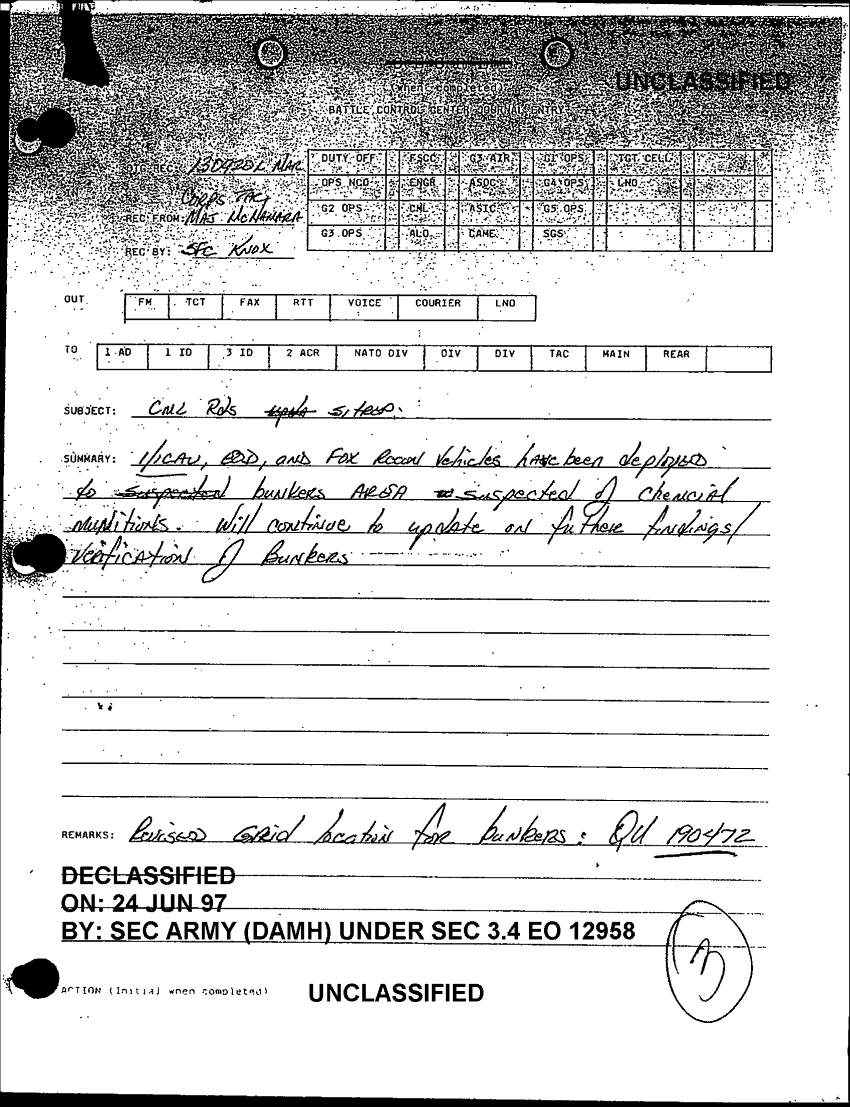 UNCLASSIFIED
(When completed)
BATTLE CONTROL CENTER JOURNAL ENTRY
130925L MAR
DUTY OFF FSCC G3 AIR G1 OPS TGT CELL
OPS NCO ENGR ASOC G4 OPS LNO
Corps TAC
REC FROM: MAJ McNAMARA
G2 OPS CML ASIC G5 OPS
G3 OPS ALO CAME SGS
REC BY: SFC KNOX
OUT FM TCT FAX RTT VOICE COURIER LNO
TO 1 AD 1 ID 3 ID 2 ACR NATO DIV DIV DIV TAC MAIN REAR
SUBJECT: CML Rds sitrep.
SUMMARY: 1/1CAV, EOD, and Fox Recon Vehicles have been deployed
to suspected bunkers AREA suspected of chemcial
munitions. Will continue to update on futhere findings/
Verification of Bunkers
REMARKS: Revised Grid location for bunkers: QU 190472
DECLASSIFIED
ON: 24 JUN 97
BY: SEC ARMY (DAMH) UNDER SEC 3.4 EO 12958
ACTION (Initial when completed)
UNCLASSIFIED